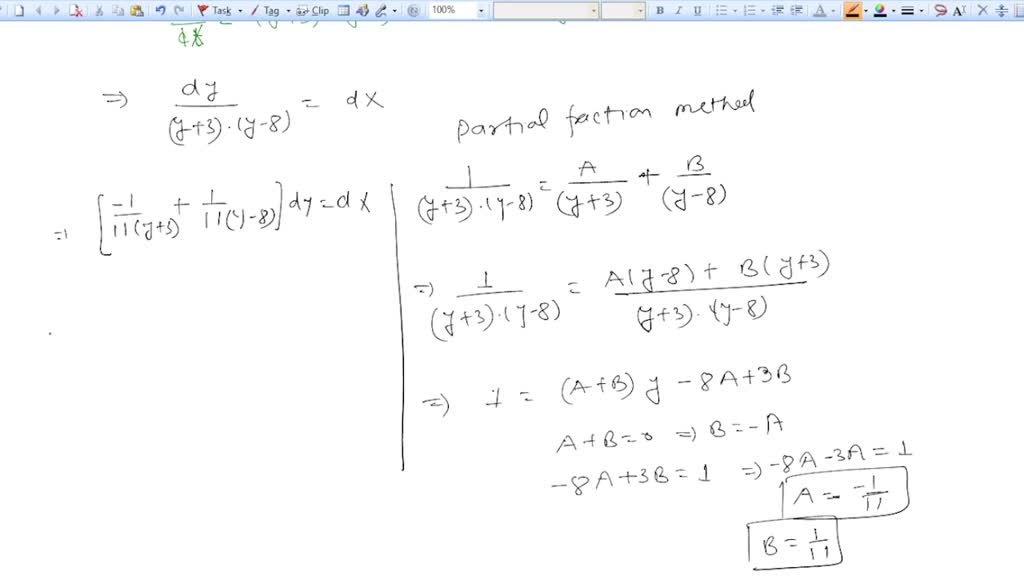 Task Clip 100% B I U
Tag
⇒ dy/((y+3)·(y-8)) = dx
⇒ [-1/(11(y+3)) + 1/(11(y-8))] dy = dx
Partial faction method
1/((y+3)·(y-8)) = A/(y+3) + B/(y-8)
⇒ 1/((y+3)·(y-8)) = (A(y-8) + B(y+3))/((y+3)·(y-8))
⇒ 1 = (A+B) y - 8A + 3B
A + B = 0 ⇒ B = -A
-8A + 3B = 1 ⇒ -8A - 3A = 1
A = -1/11
B = 1/11